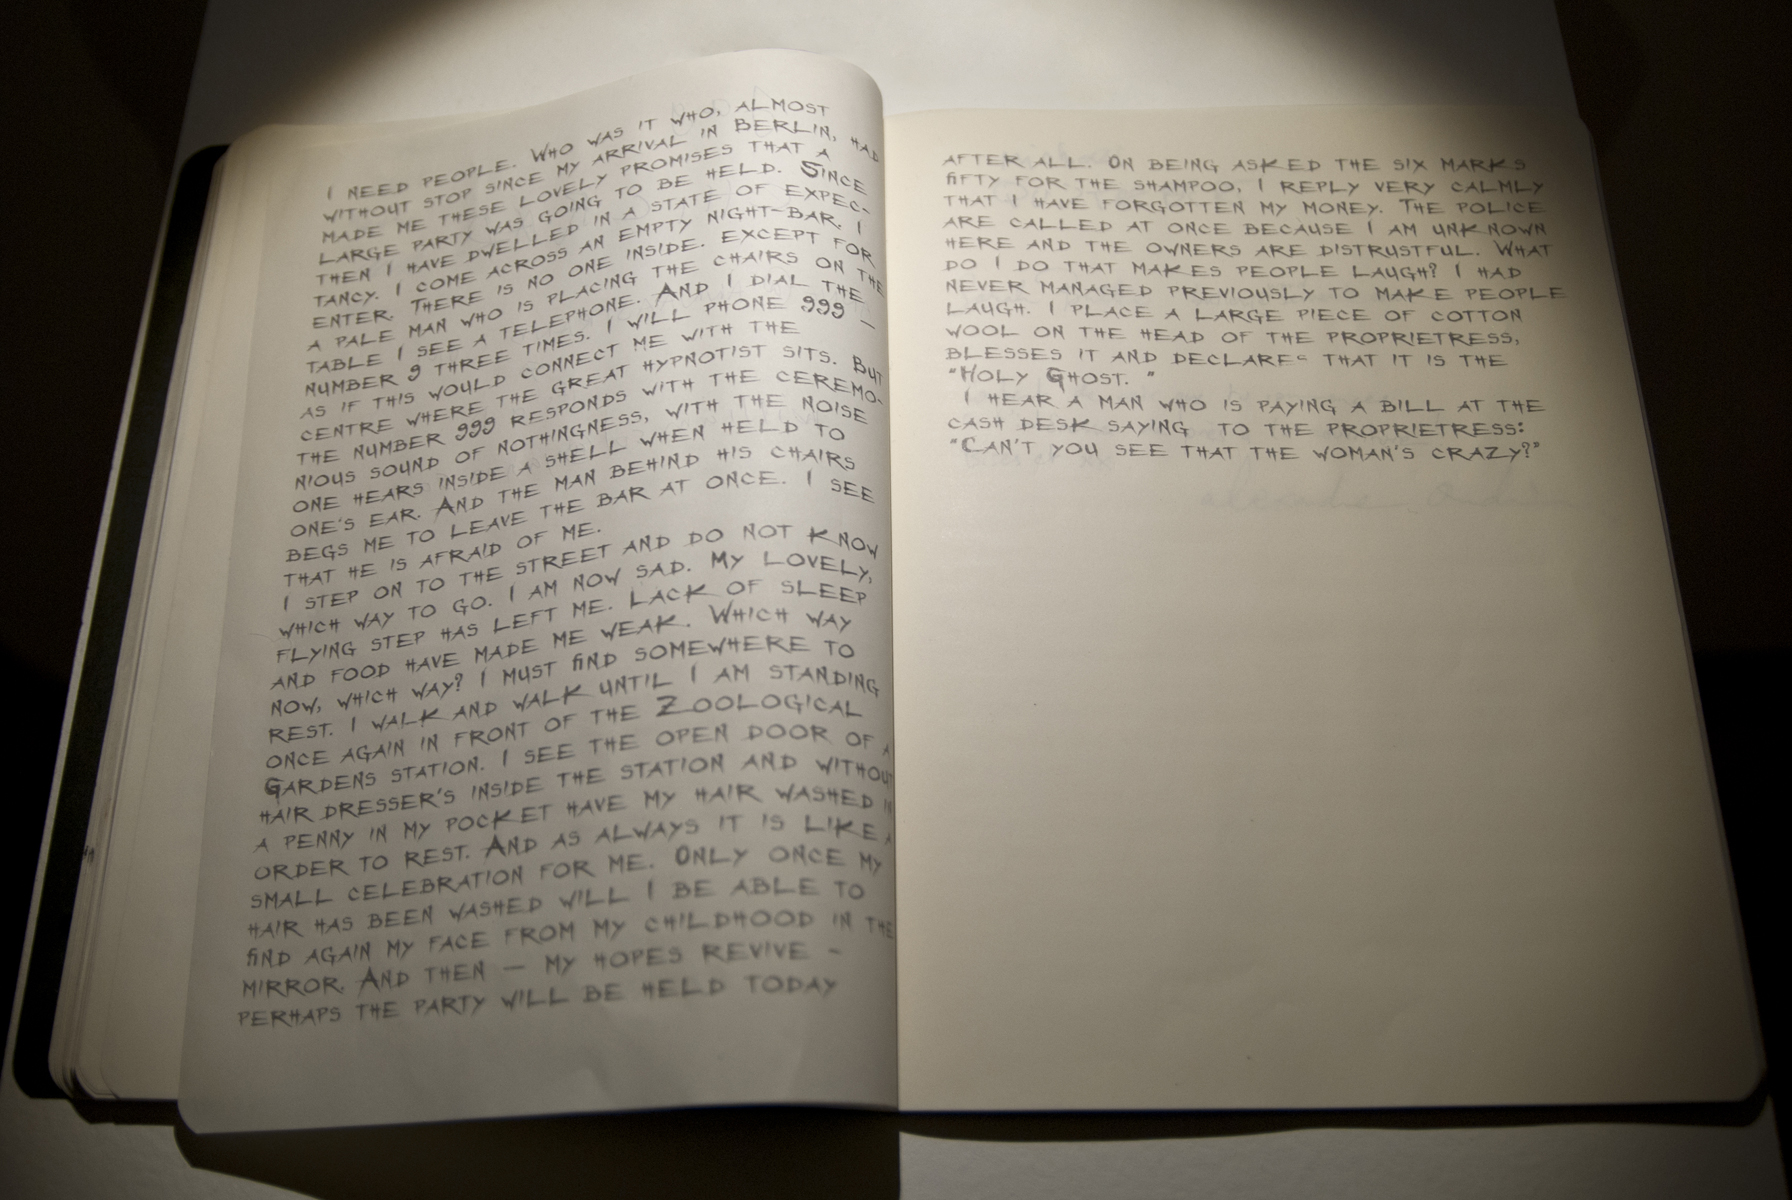 I NEED PEOPLE. WHO WAS IT WHO, ALMOST
WITHOUT STOP SINCE MY ARRIVAL IN BERLIN, HAD
MADE ME THESE LOVELY PROMISES THAT A
LARGE PARTY WAS GOING TO BE HELD. SINCE
THEN I HAVE DWELLED IN A STATE OF EXPEC-
TANCY. I COME ACROSS AN EMPTY NIGHT-BAR. I
ENTER. THERE IS NO ONE INSIDE. EXCEPT FOR
A PALE MAN WHO IS PLACING THE CHAIRS ON THE
TABLE I SEE A TELEPHONE. AND I DIAL THE
NUMBER 9 THREE TIMES. I WILL PHONE 999 —
AS IF THIS WOULD CONNECT ME WITH THE
CENTRE WHERE THE GREAT HYPNOTIST SITS. BUT
THE NUMBER 999 RESPONDS WITH THE CEREMO-
NIOUS SOUND OF NOTHINGNESS, WITH THE NOISE
ONE HEARS INSIDE A SHELL WHEN HELD TO
ONE'S EAR. AND THE MAN BEHIND HIS CHAIRS
BEGS ME TO LEAVE THE BAR AT ONCE. I SEE
THAT HE IS AFRAID OF ME.
I STEP ON TO THE STREET AND DO NOT KNOW
WHICH WAY TO GO. I AM NOW SAD. MY LOVELY,
FLYING STEP HAS LEFT ME. LACK OF SLEEP
AND FOOD HAVE MADE ME WEAK. WHICH WAY
NOW, WHICH WAY? I MUST FIND SOMEWHERE TO
REST. I WALK AND WALK UNTIL I AM STANDING
ONCE AGAIN IN FRONT OF THE ZOOLOGICAL
GARDENS STATION. I SEE THE OPEN DOOR OF A
HAIR DRESSER'S INSIDE THE STATION AND WITHOUT
A PENNY IN MY POCKET HAVE MY HAIR WASHED IN
ORDER TO REST. AND AS ALWAYS IT IS LIKE A
SMALL CELEBRATION FOR ME. ONLY ONCE MY
HAIR HAS BEEN WASHED WILL I BE ABLE TO
FIND AGAIN MY FACE FROM MY CHILDHOOD IN THE
MIRROR. AND THEN — MY HOPES REVIVE -
PERHAPS THE PARTY WILL BE HELD TODAY
AFTER ALL. ON BEING ASKED THE SIX MARKS
FIFTY FOR THE SHAMPOO, I REPLY VERY CALMLY
THAT I HAVE FORGOTTEN MY MONEY. THE POLICE
ARE CALLED AT ONCE BECAUSE I AM UNKNOWN
HERE AND THE OWNERS ARE DISTRUSTFUL. WHAT
DO I DO THAT MAKES PEOPLE LAUGH? I HAD
NEVER MANAGED PREVIOUSLY TO MAKE PEOPLE
LAUGH. I PLACE A LARGE PIECE OF COTTON
WOOL ON THE HEAD OF THE PROPRIETRESS,
BLESSES IT AND DECLARES THAT IT IS THE
"HOLY GHOST. "
I HEAR A MAN WHO IS PAYING A BILL AT THE
CASH DESK SAYING TO THE PROPRIETRESS:
"CAN'T YOU SEE THAT THE WOMAN'S CRAZY?"